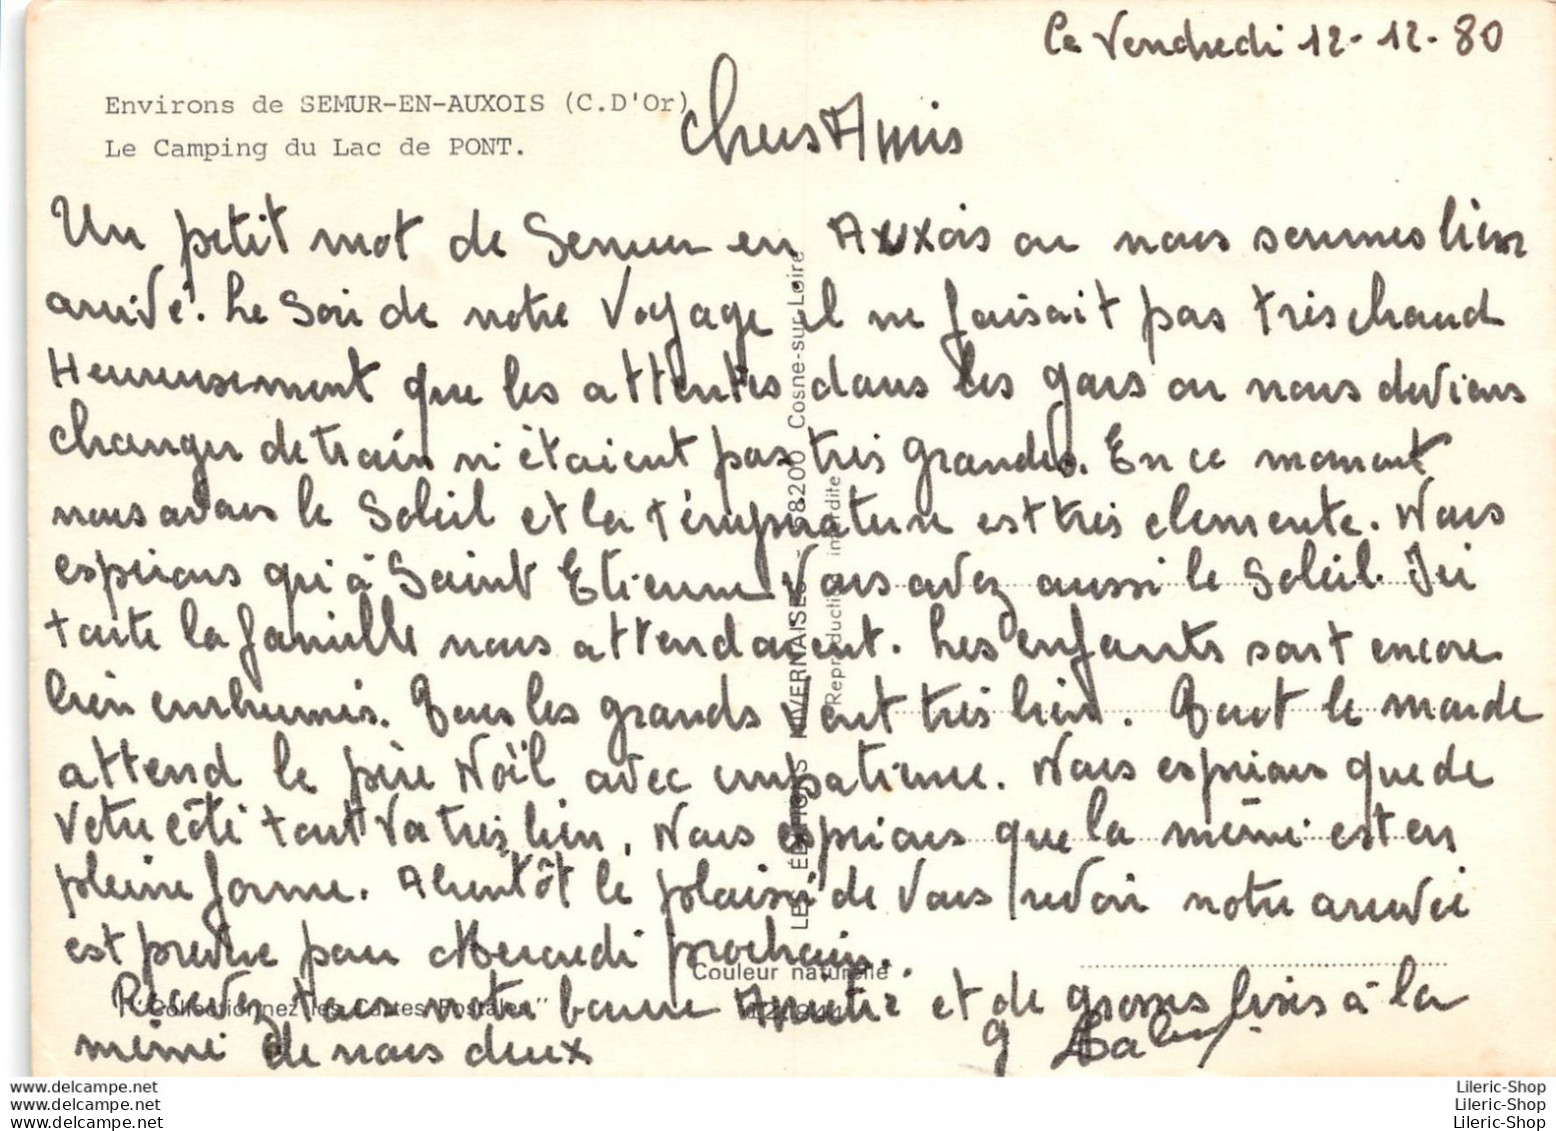 Le Vendredi 12-12-80
Environs de SEMUR-EN-AUXOIS (C.D'Or)
Le Camping du Lac de PONT.
Chers Amis
Un petit mot de Semur en Auxois ou nous sommes bien
arrivé. Le Soir de notre Voyage il ne faisait pas très chaud
Heureusement que les attentes dans les gars ou nous devions
changer de train n'étaient pas très grandes. En ce moment
nous avons le Soleil et la température est très clemente. Nous
espérons qu'à Saint Etienne Vous avez aussi le Soleil. Ici
toute la famille nous attendaient. Les enfants sont encore
bien enrhumés. Tous les grands Vont très bien. Tout le monde
attend le père Noël avec impatience. Nous espérons que de
Votre côté tout Va très bien. Nous espérons que la mémé est en
pleine forme. A bientôt le plaisir de Vous revoir notre arrivée
est prévue pour Mercredi prochain.
Recevez tous notre bonne Amitié et de grosses bises à la
mémé de nous deux
LES ÉDITIONS NIVERNAISES - 58200 Cosne-sur-Loire
Reproduction interdite
Couleur naturelle
"Collectionnez les Cartes Postales"
Lileric-Shop
Lileric-Shop
Lileric-Shop
www.delcampe.net
www.delcampe.net
www.delcampe.net